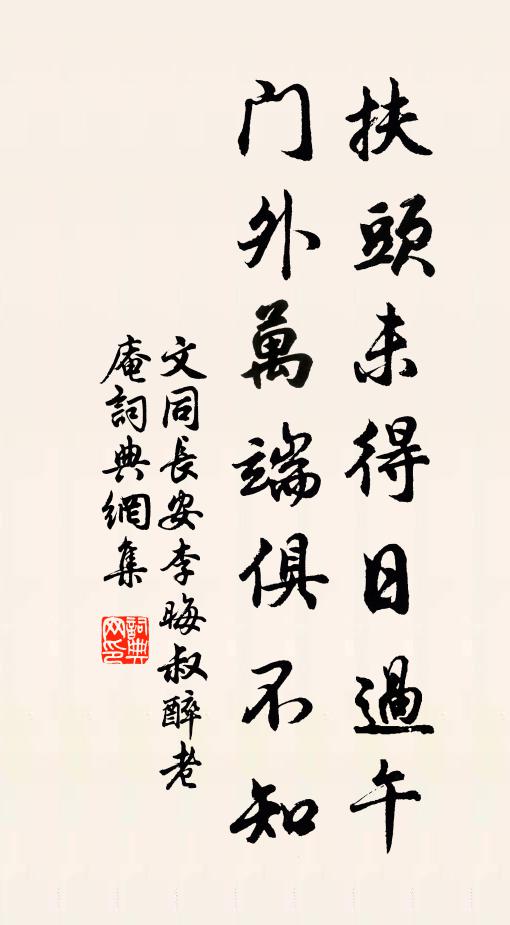 扶頭未得日過午
门外萬端俱不知
文同長安李晦叔醉老
庵詞典網集
詞典
网印